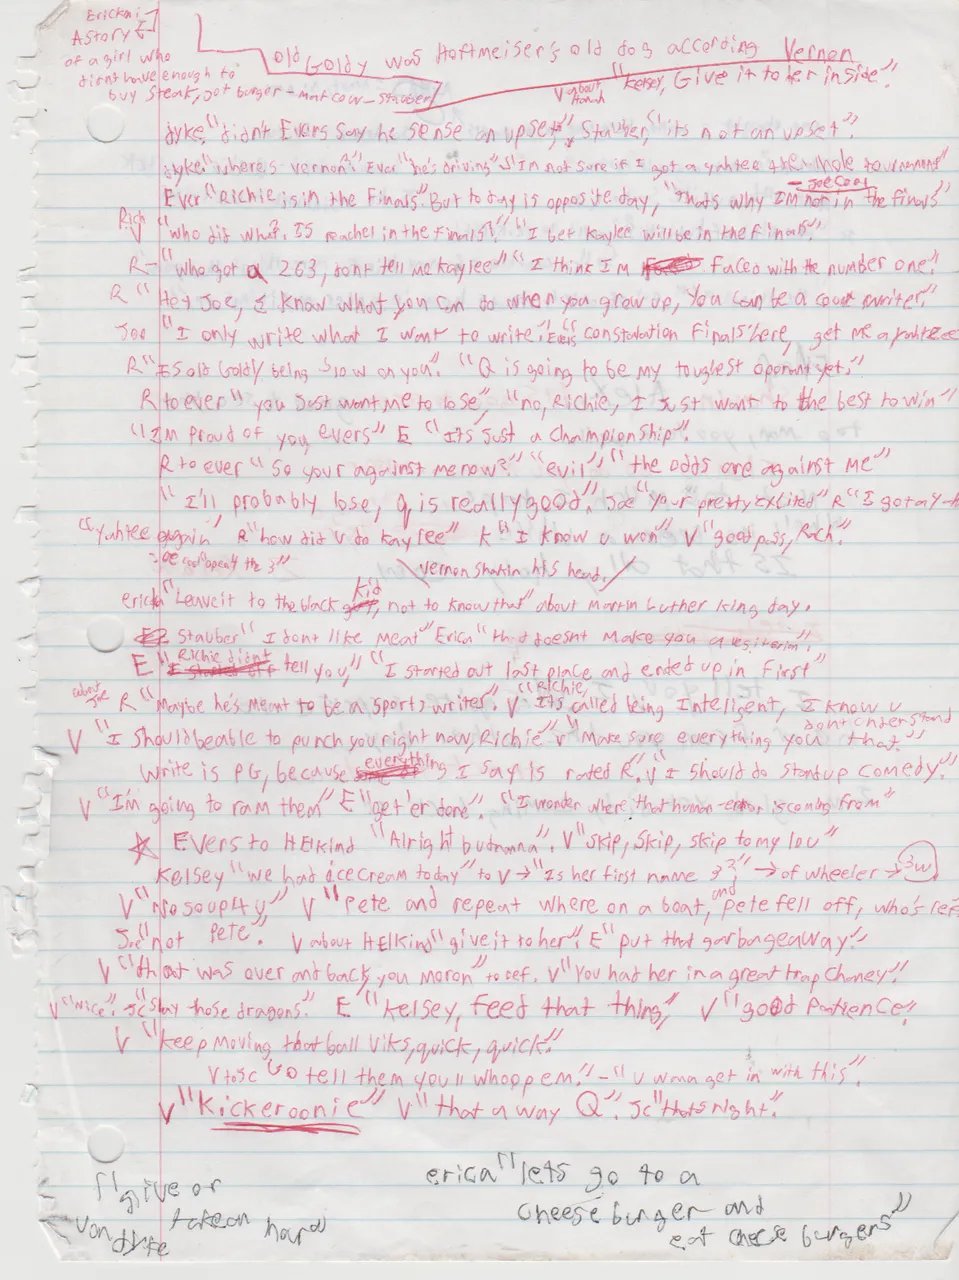 Erickai
A story
of a girl who
didnt have enough to
buy steak, got burger - mat cow - stauber
old Goldy was Hoffmeiser's old dog according Vernon
V about Hannah "Kelsey, Give it to her inside".
dyke, "didn't Evers say he sense an upset," Stauber, "its not an upset".
dyke "where's vernon". Ever "he's driving" "I'm not sure if I got a yahtee the whole tournament"
- Joe Cool
Ever "Richie is in the finals". But today is opposite day, "thats why I'm not in the finals"
Rich "who did what. IS rachel in the finals". "I bet Kaylee will be in the finals".
R- "who got a 263, dont tell me kaylee" "I think I'm faced with the number one".
R "Hey Joe, I know what you can do when you grow up, You can be a court writer".
Joe "I only write what I want to write". Evers "constalation finals here, get me a yahtzee
R "Is old Goldy being slow on you". "Q is going to be my toughest oponant yet".
R to ever "you just want me to lose", "no, Richie, I just want to the best to win"
"I'm proud of you evers" E "Its just a championship".
R to ever "So your against me now?" "evil", "the odds are against me"
"I'll probably lose, q is really good". Joe "your pretty excited" R "I got a y-h
"yahtee again" R "how did U do kaylee" K "I know u won" V "good pass, Rach".
Joe cool "open the 3"
\ Vernon shakin his head. /
erica "Leave it to the black kid, not to know that" about Martin Luther king day.
Stauber "I dont like meat" Erica "that doesnt make you a vesiterim".
E "Richie didnt tell you," "I started out last place and ended up in first"
about Joe R "Maybe he's meant to be a sports writer". V "Richie, Its called being Intelligent, I know u
dont understand
V "I should be able to punch you right now, Richie" V "Make sure everything you that"
write is PG, because everything I say is rated R. V "I should do standup comedy".
V "I'm going to ram them" E "get'er done". "I wonder where that human error is coming from"
☆ Evers to HElkind "Alright budnanna". V "skip, skip, skip to my lou"
Kelsey "we had icecream today" to V → "Is her first name 3?" → of wheeler → 3w
V "No soup 4 y," V "Pete and repeat where on a boat, and pete fell off, who's left
Joe "not Pete". V about HElkind "give it to her". E "put that garbage away".
V "that was over and back, you moron" to ref. V "You had her in a great trap Chaney".
V "Nice". Jc "Slay those dragons". E "Kelsey, feed that thing," V "good Patience".
V "keep moving that ball Viks, quick, quick".
V to Sc "Go tell them you'll whoop em." - "U wana get in with this".
V "Kickeroonie" V "that a way Q". Jc "thats right".
"give or
takean hard
Vandike
erica "lets go to a
cheese burger and
eat chese burgers"